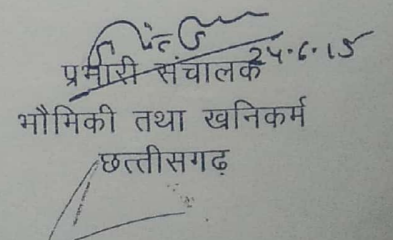 24.6.15
प्रभारी संचालक
भौमिकी तथा खनिकर्म
छत्तीसगढ़